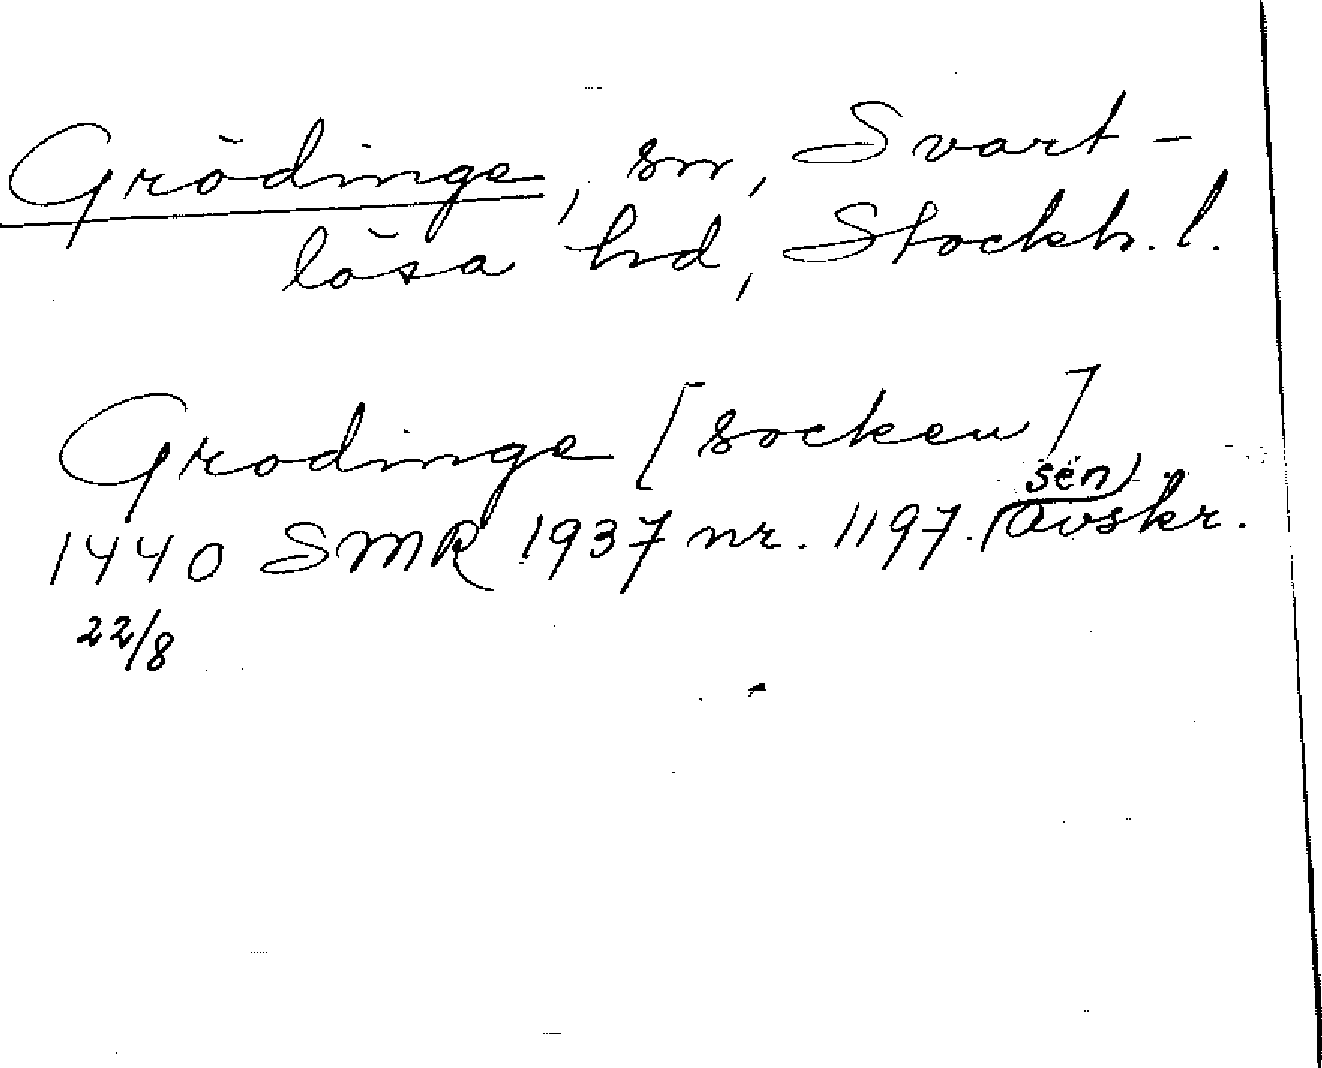 Grödinge, sn, Svart-
lösa hd, Stockh. l.
Grodinge [socken]
sen)
1440 SMR 1937 nr. 1197. (avskr.
22/8